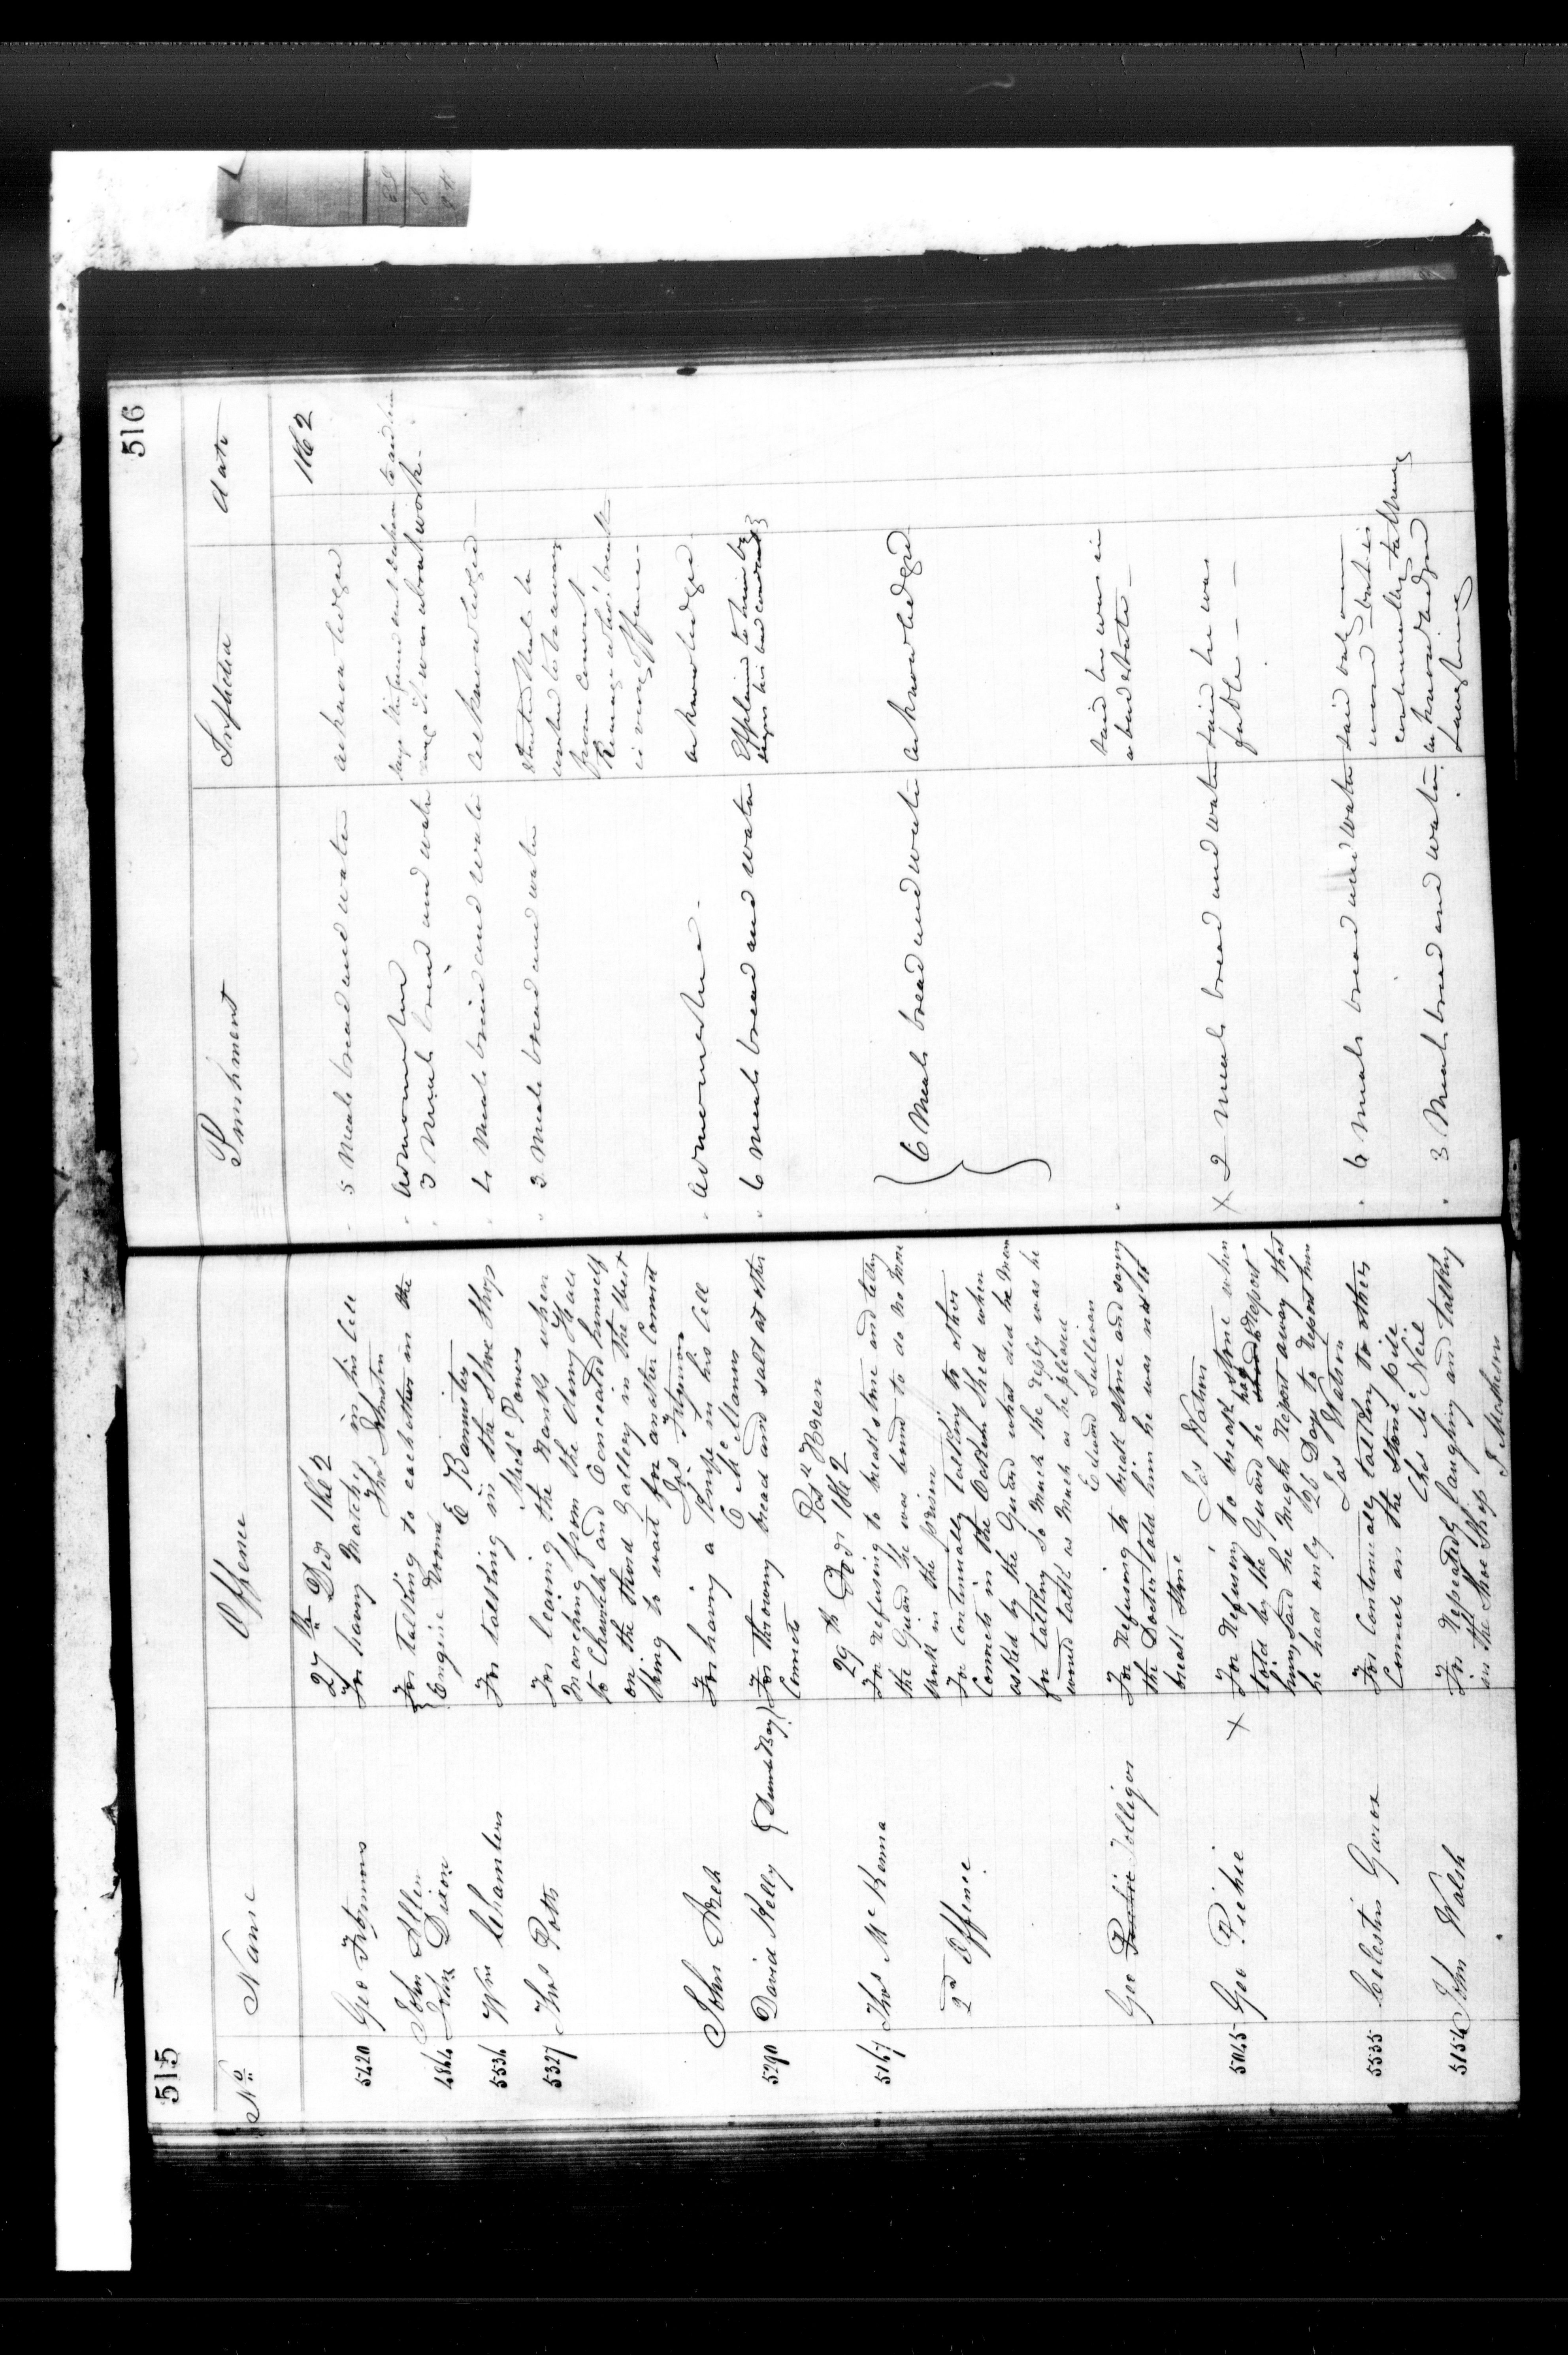 515
No
Name
Offence
27th Decr 1862
5420 Geo Fitzmons
For having Matches in his Cell
Thos Johnston
John Allen
4864 John Dixon
For talking to each other in the
Engine Room
E Bannister
5534 Wm Chambers
For talking in the Shoe Shop
Power
5327 Thos Potts
For leaving the Ranks when
Marching from the dining Hall
to Church and Concealed himself
on the third Gallery in the West
Wing to wait for another Convict
John Areh
For having a Knife in his Cell
C McManus
5290 David Kelly (Dumb Boy)
For throwing bread and salt at other
Convicts
29th Decr 1862
5167 Thos McKenna
For refusing to break stone and telling
the Guard he was bound to do no more
work in the prison
2d Offence
For continually talking to other
Convicts in the Oakum Shed when
asked by the Guard what did he mean
for talking so much the reply was he
would talk as much as he pleased
Edward Sullivan
Geo Tolliger
For Refusing to break Stone and saying
the Doctor told him he was not to
break Stone
Jas Watson
5045 Geo Pichie
X For refusing to break stone when
told by the Guard he had Report
him, said he might Report away that
he had only 26 Days to Report him
Jas Watson
5535 Celestin
For Continually talking to others
Convicts on the Stone pile
Chs McNeil
5154 John Walsh
For repeatedly laughing and talking
in the Shoe Shop
516
Punishment
date
1862
5 Meals bread and water
acknowledged
Admonition
3 Meals bread and water
it was about work
4 Meals bread and water
acknowledged
3 Meals bread and water
wanted to be away
from convict
Admonition
acknowledged
6 Meals bread and water
Explained to him by
signs his bad conduct
6 Meals bread and water
acknowledged
said he was in
a bad state
X 2 Meals bread and water
said he was
feeble
6 Meals bread and water
said only one
word but is
continually talking
3 Meals bread and water
acknowledged
laughing